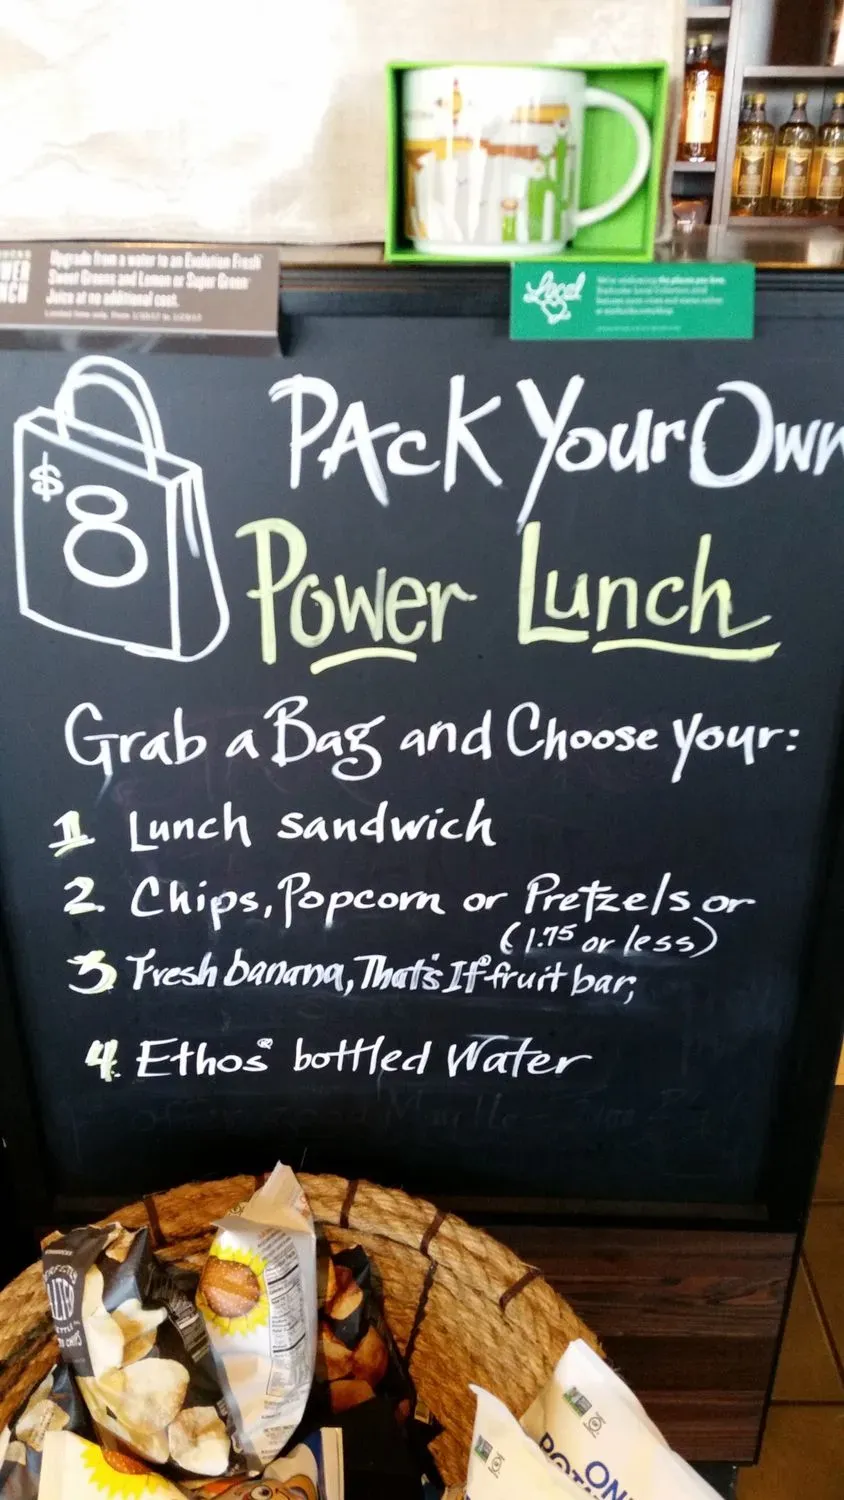 WER
NCH
Upgrade from a water to an Evolution Fresh
Sweet Greens and Lemon or Super Green
Juice at no additional cost.
Local
$8
PAcK Your Own
Power Lunch
Grab a Bag and Choose your:
1 Lunch sandwich
2. Chips, Popcorn or Pretzels or
(1.75 or less)
3 Fresh banana, That's It® fruit bar,
4. Ethos® bottled Water